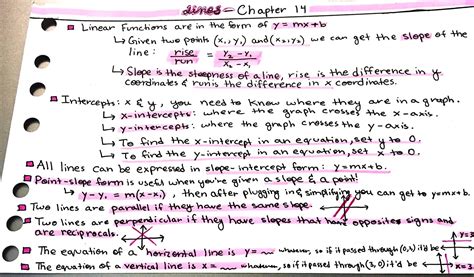 Lines – Chapter 14
Linear Functions are in the form of y = mx + b
↳ Given two points (x₁, y₁) and (x₂, y₂) we can get the slope of the
line: rise/run = y₂ - y₁/x₂ - x₁
↳ Slope is the steepness of a line, rise is the difference in y
coordinates & run is the difference in x coordinates.
Intercepts: x & y, you need to know where they are in a graph.
↳ x-intercepts: where the graph crosses the x-axis.
↳ y-intercepts: where the graph crosses the y-axis.
↳ To find the x-intercept in an equation, set y to 0.
↳ To find the y-intercept in an equation, set x to 0.
All lines can be expressed in slope-intercept form: y=mx+b.
Point-slope form is useful when you're given a slope & a point!
↳ y-y₁ = m(x-x₁), then after plugging in & simplifying you can get to y=mx+b.
Two lines are parallel if they have the same slope.
Two lines are perpendicular if they have slopes that have opposite signs and
are reciprocals.
y=3
The equation of a horizontal line is y = whatever, so if it passed through (0,3) it'd be
The equation of a vertical line is x = whatever, so if it passed through (3,0) it'd be